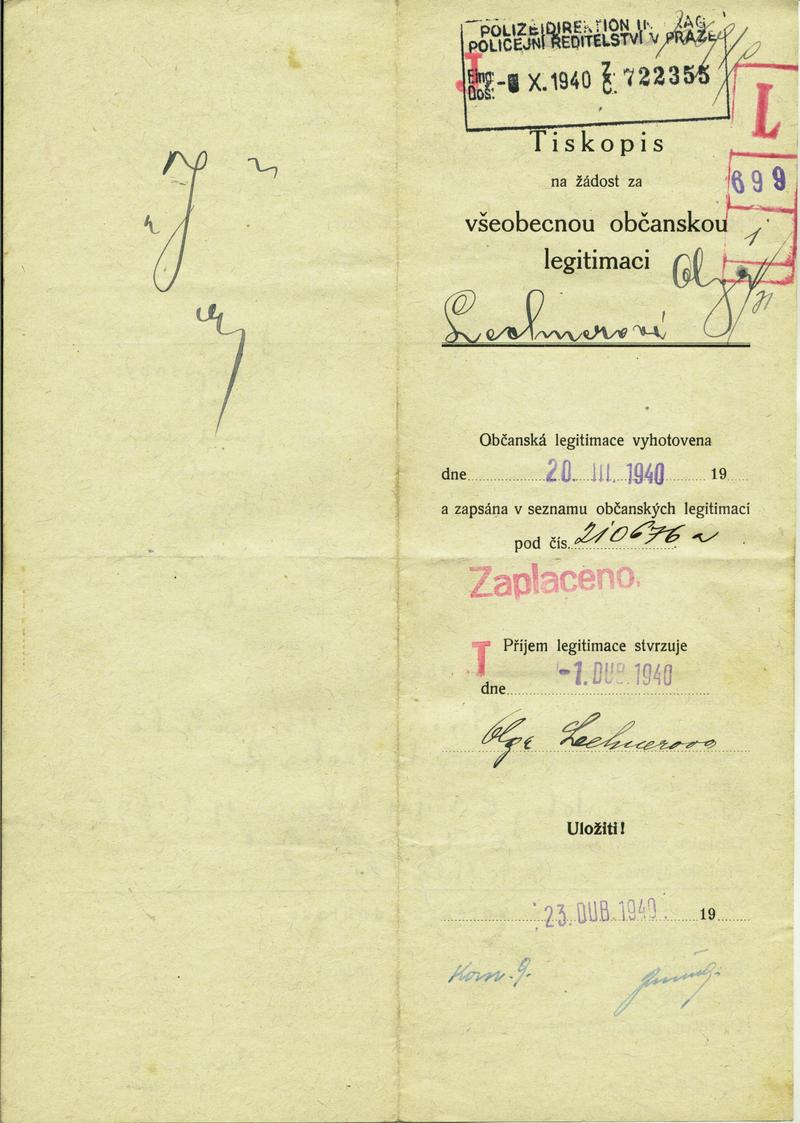 POLIZEIDIREKTION IN PRAG
POLICEJNÍ ŘEDITELSTVÍ V PRAZE
Eing.
Doš.
X. 1940
Z.
Č.
722355
L
699
1
Tiskopis
na žádost za
všeobecnou občanskou
legitimaci Olgy
Lechnerové
Občanská legitimace vyhotovena
dne 20. III. 1940 19
a zapsána v seznamu občanských legitimací
pod čís. 210676 a
Zaplaceno.
T
Příjem legitimace stvrzuje
dne -1. DUB. 1940
Olga Lechnerova
Uložiti!
23. DUB. 1940 19
Kom. 9.
J